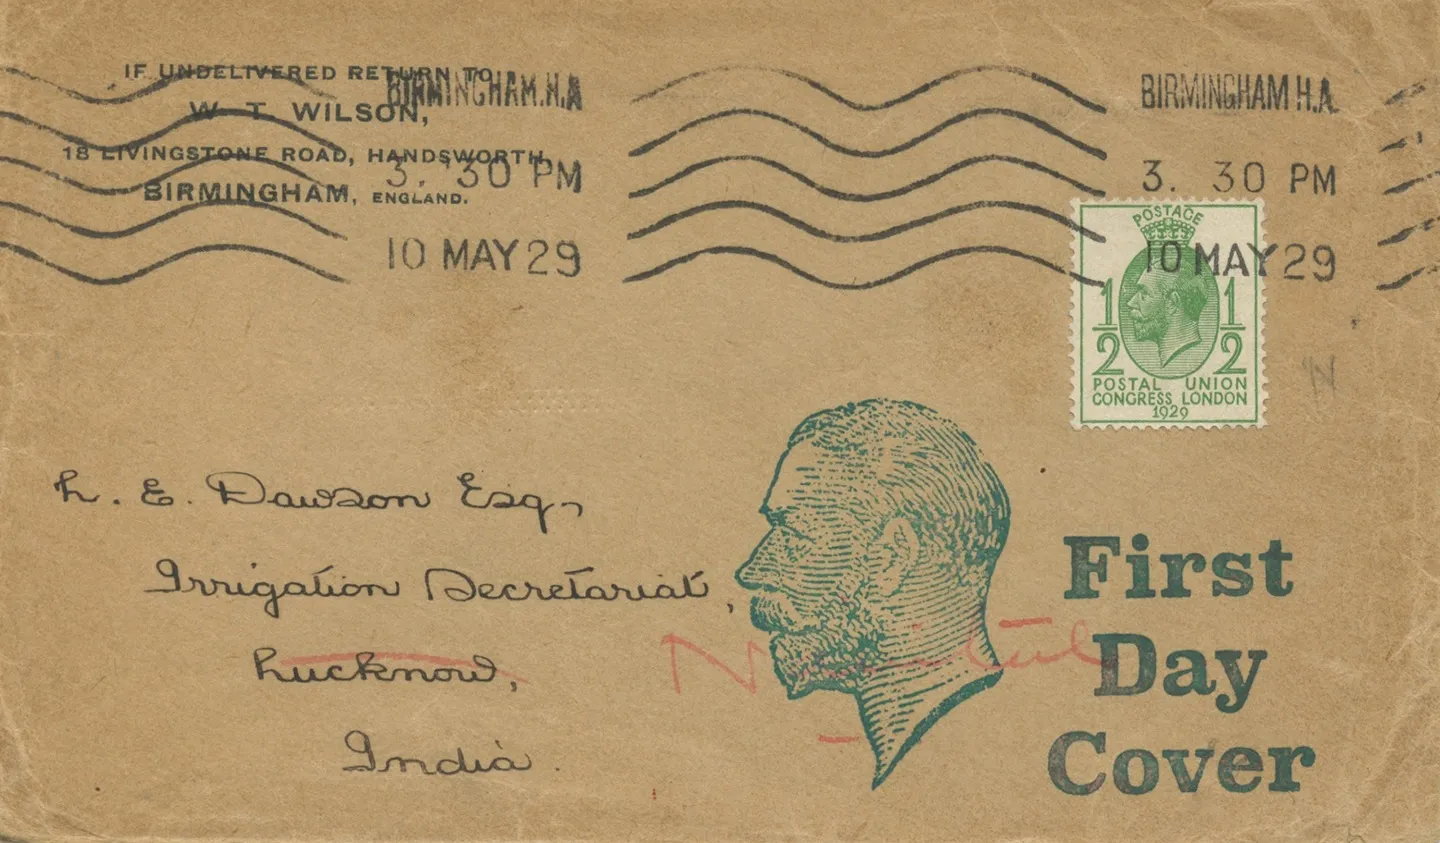 IF UNDELIVERED RETURN TO
W. T. WILSON,
18 LIVINGSTONE ROAD, HANDSWORTH,
BIRMINGHAM, ENGLAND.
BIRMINGHAM.H.A
3. 30 PM
10 MAY 29
BIRMINGHAM H.A.
3. 30 PM
10 MAY 29
POSTAGE
1/2 1/2
POSTAL UNION
CONGRESS LONDON
1929
L. E. Dawson Esq.,
Irrigation Secretariat,
Lucknow,
India.
First
Day
Cover